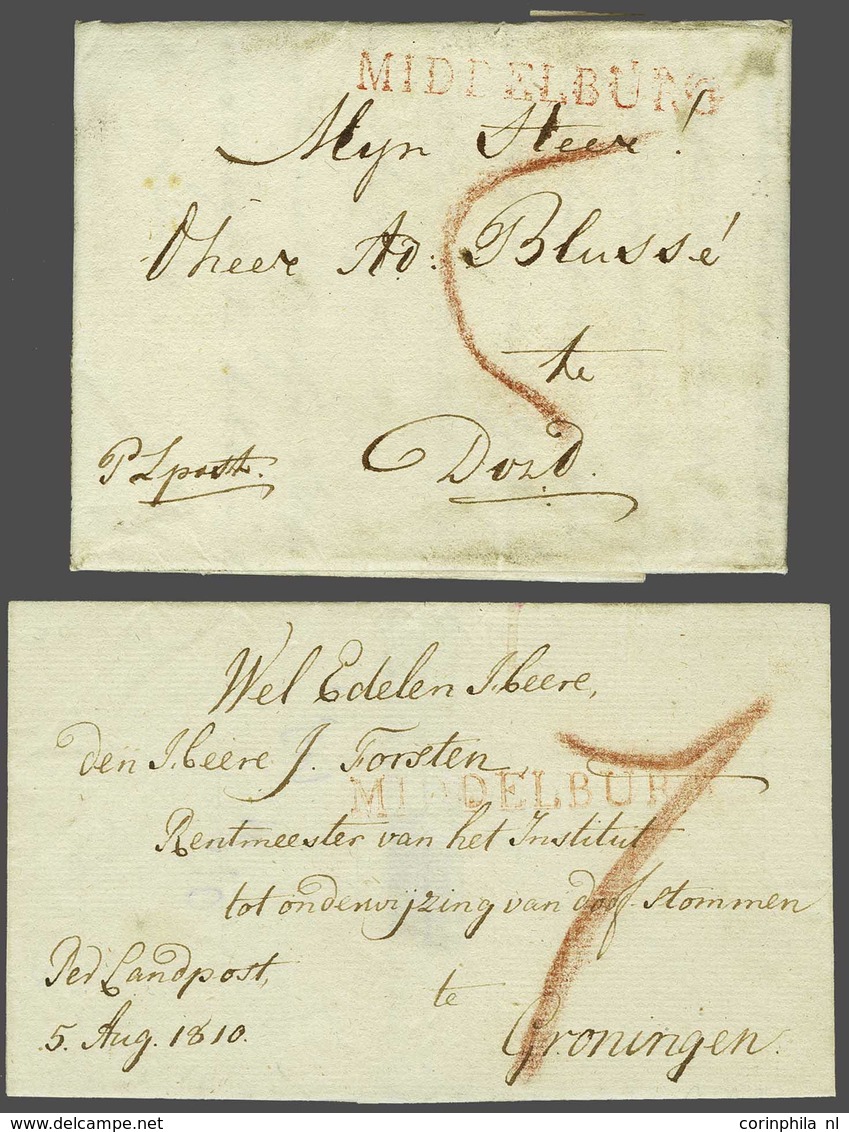 MIDDELBURG
Mijn Heer!
Dheer Ad: Blussé
te
P Lpost.
Dord.
5
Wel Edelen Heere,
den Heere J. Forsten,
MIDDELBURG
Rentmeester van het Instituit
tot onderwijzing van doof-stommen
Per Landpost,
te
5. Aug. 1810.
Groningen.
7
www.delcampe.net
corinphila nl